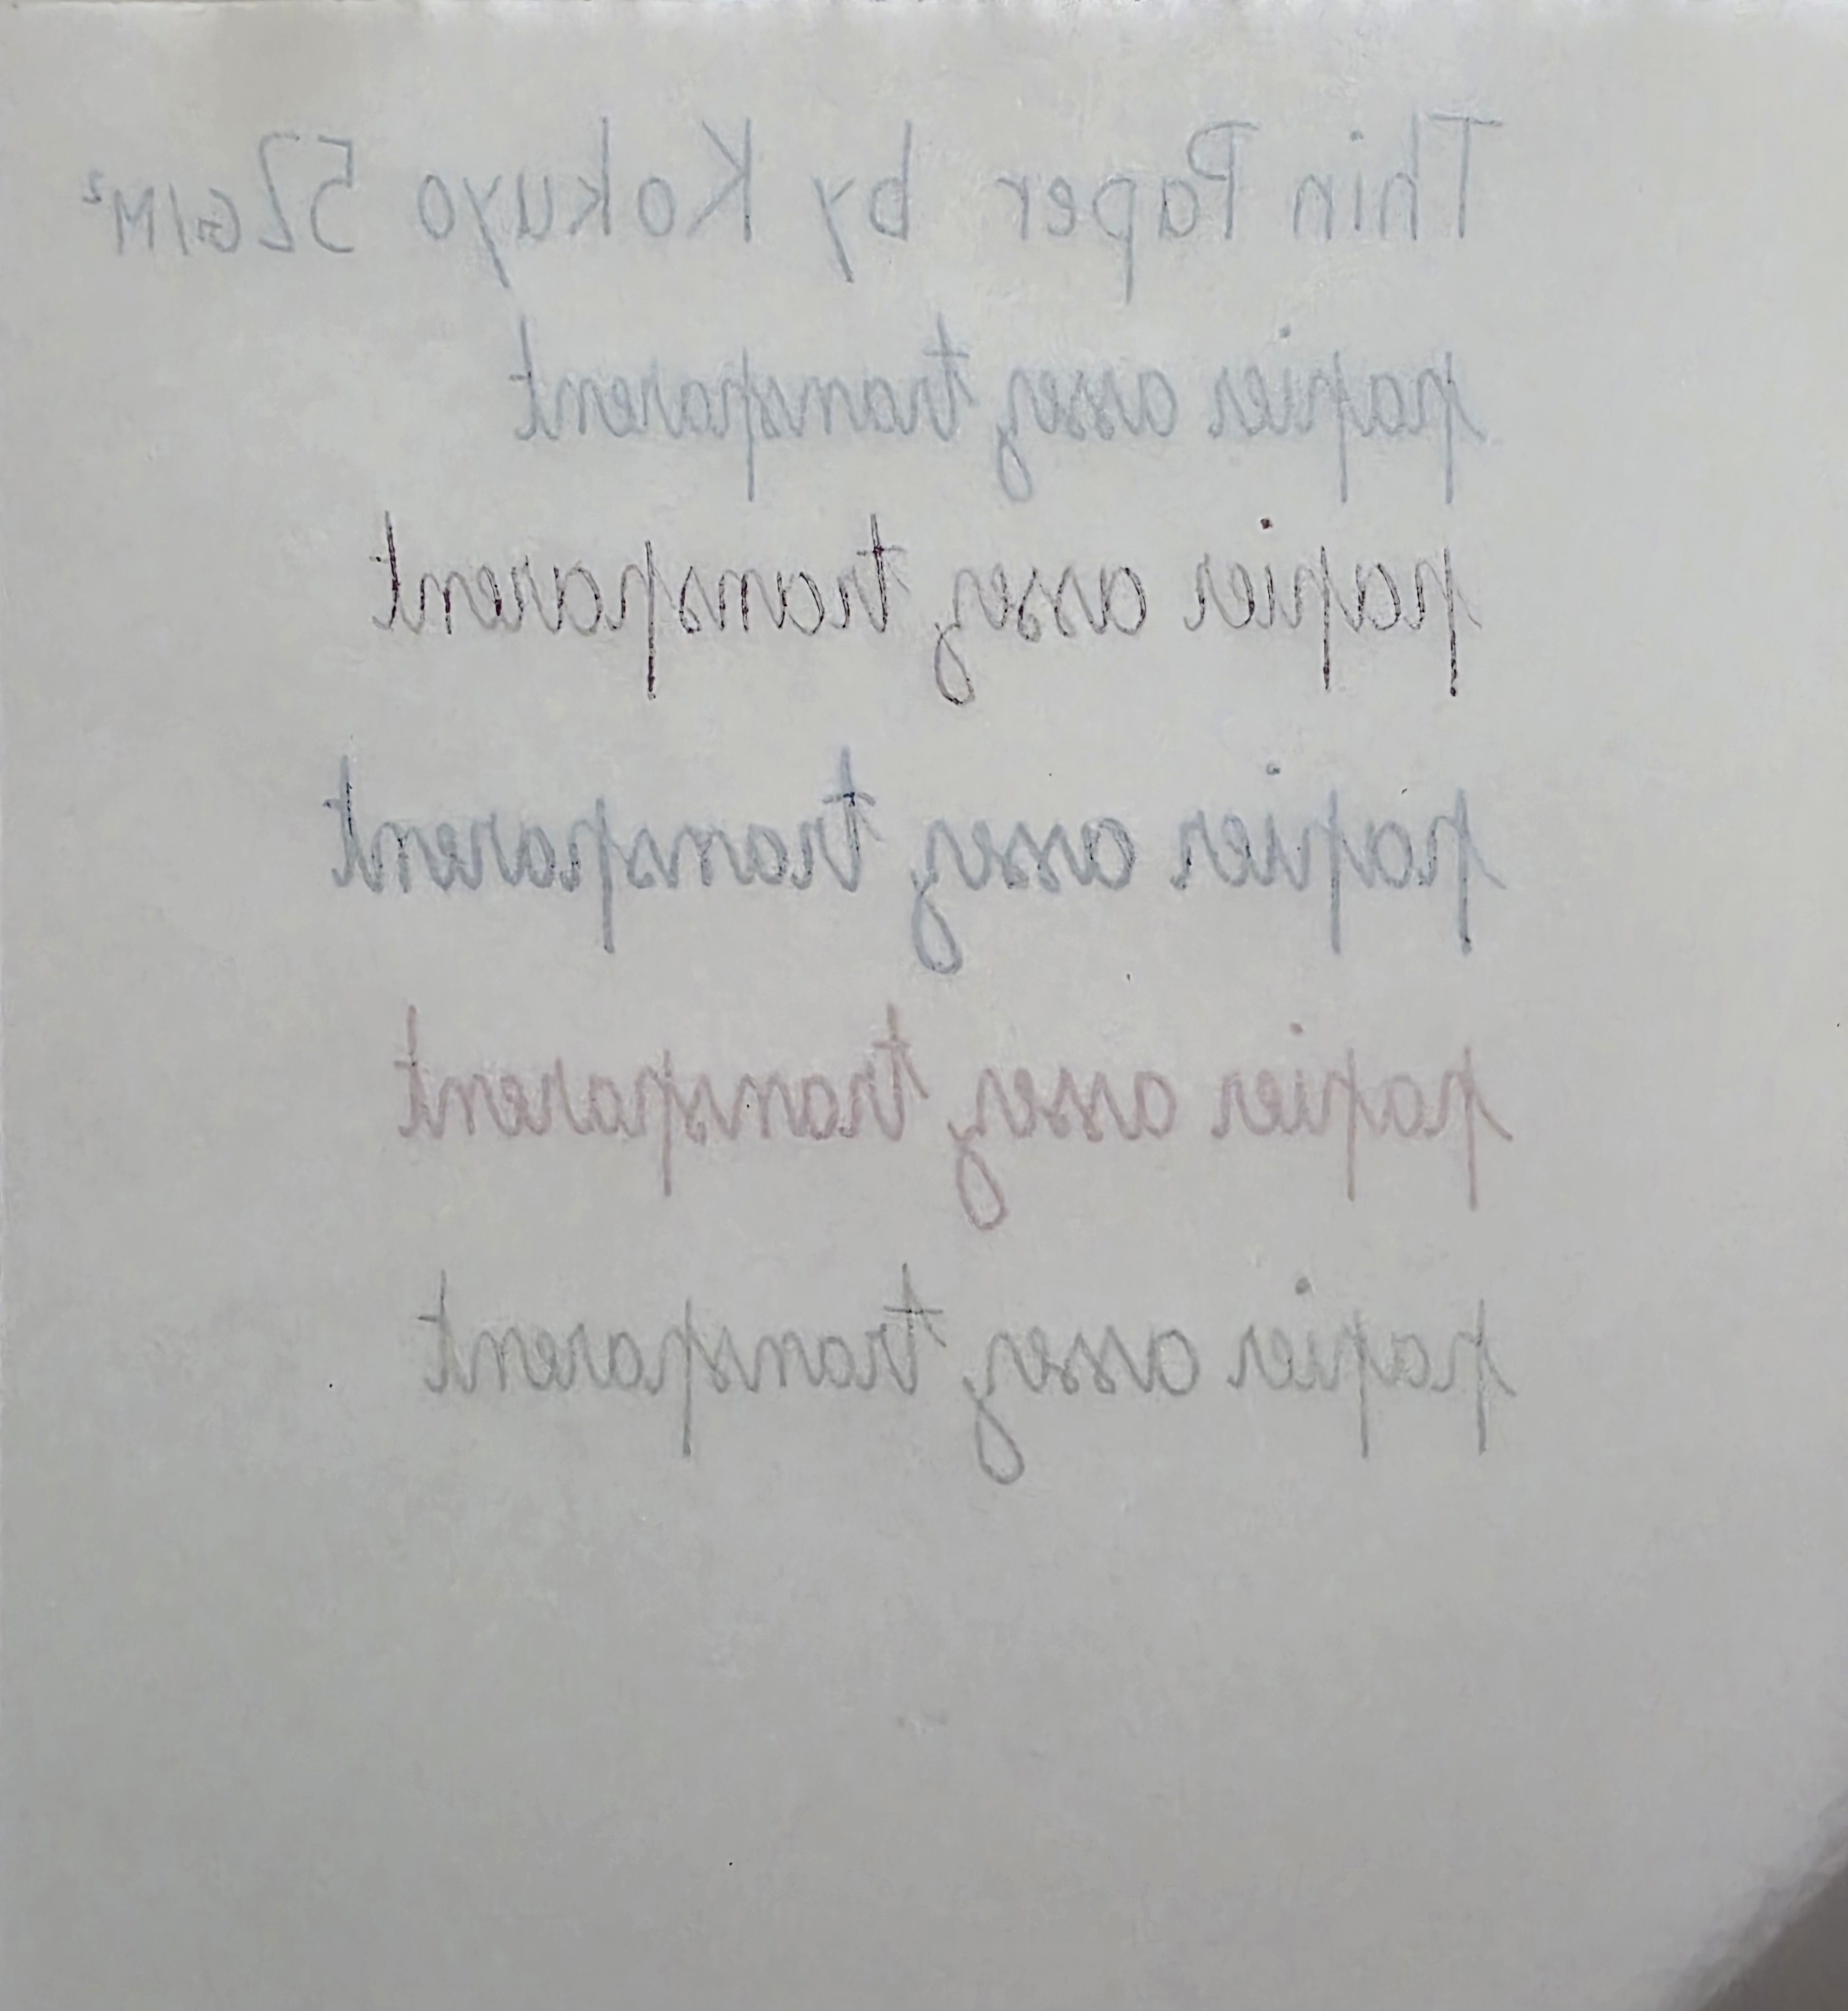 Thin Paper by Kokuyo 52G/M²
papier assez transparent
papier assez transparent
papier assez transparent
papier assez transparent
papier assez transparent